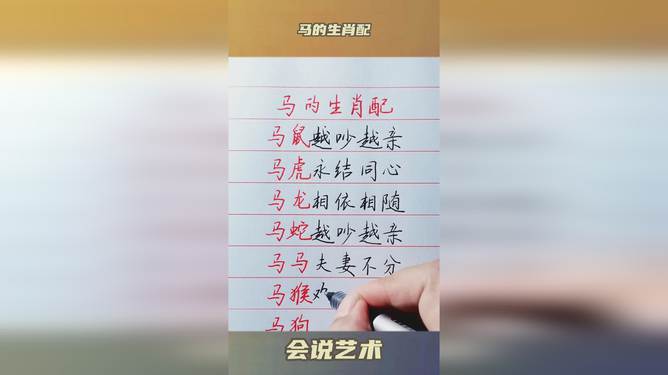 马的生肖配
马的生肖配
马鼠越吵越亲
马虎永结同心
马龙相依相随
马蛇越吵越亲
马马夫妻不分
马猴
马狗
会说艺术